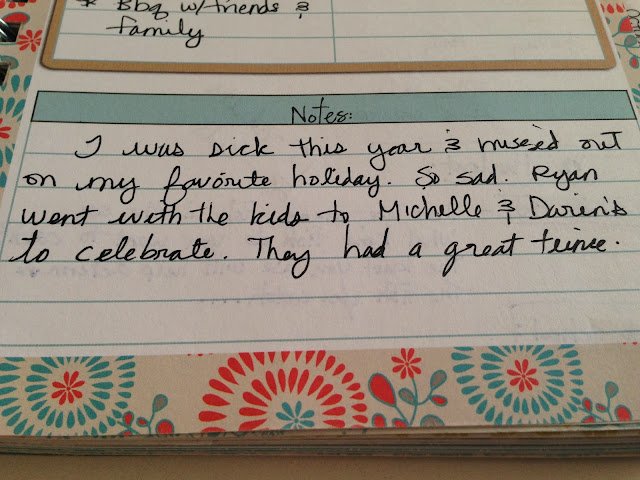 * Bbq w/friends &
family
Notes:
I was sick this year & missed out
on my favorite holiday. So sad. Ryan
went with the kids to Michelle & Daren's
to celebrate. They had a great time.